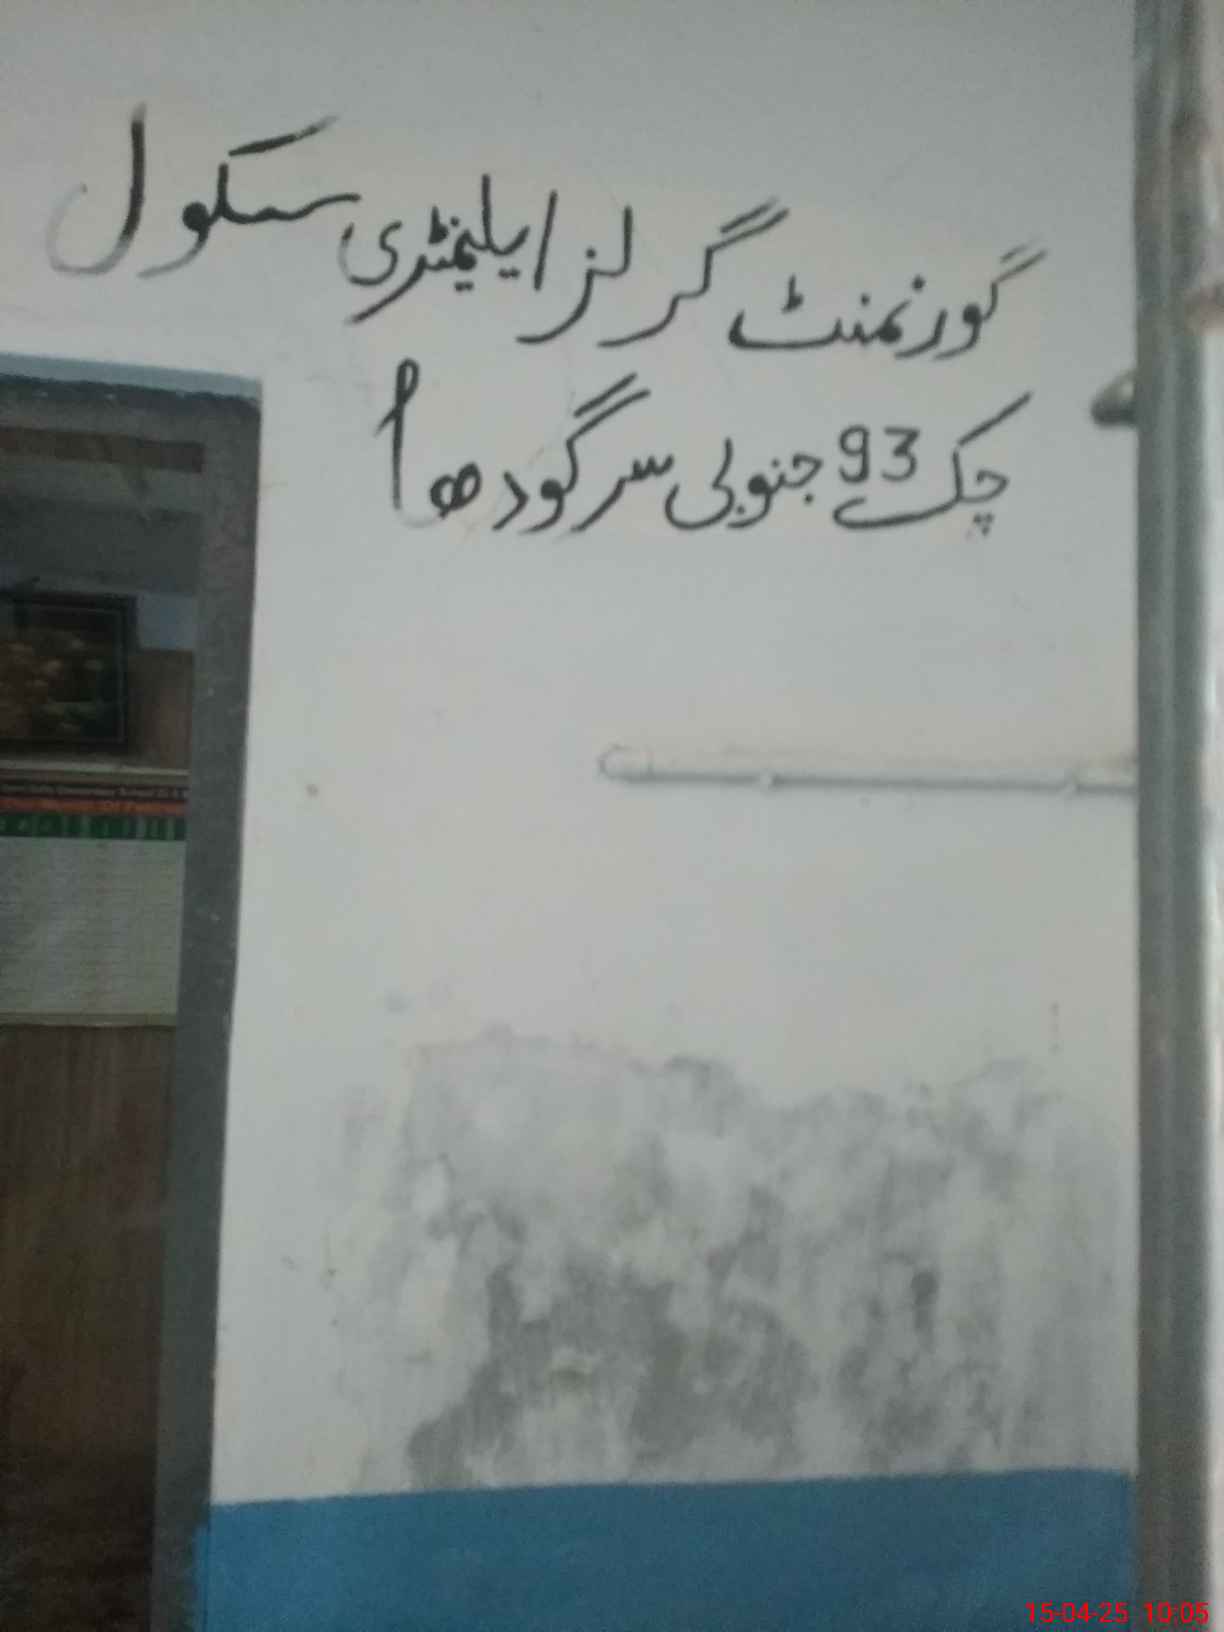 گورنمنٹ گرلز ایلیمنٹری سکول
چک 93 جنوبی سرگودھا
15-04-25 10:05